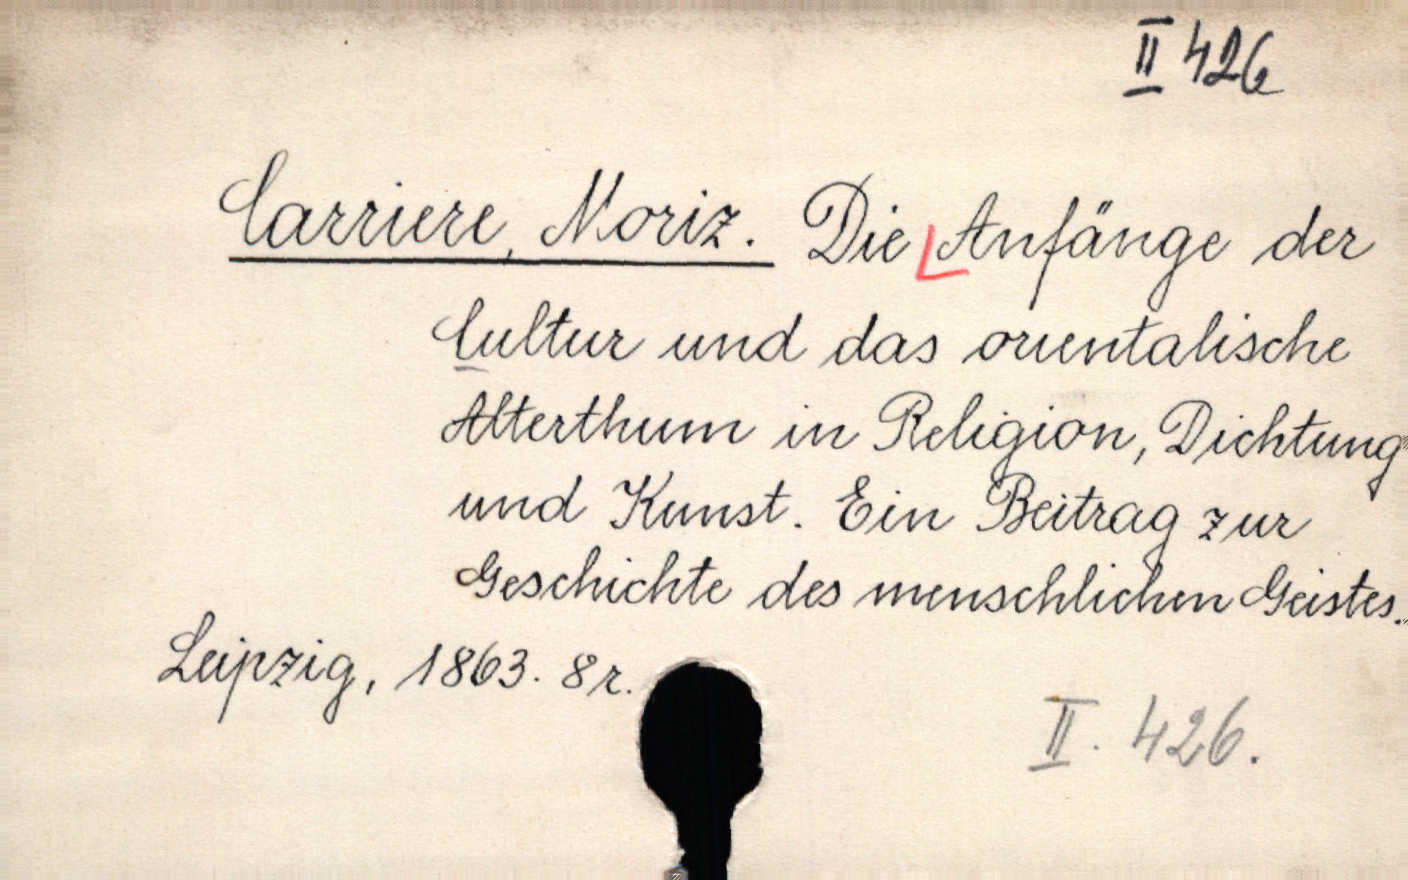 II 426
Carriere, Moriz. Die Anfänge der
Cultur und das orientalische
Alterthum in Religion, Dichtung
und Kunst. Ein Beitrag zur
Geschichte des menschlichen Geistes.
Leipzig, 1863. 8r.
II. 426.